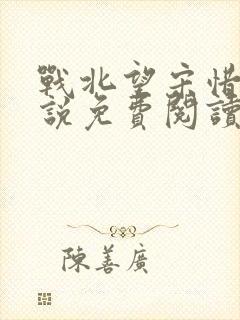 戰北望宋惜
說免費閱讀
陳善廣